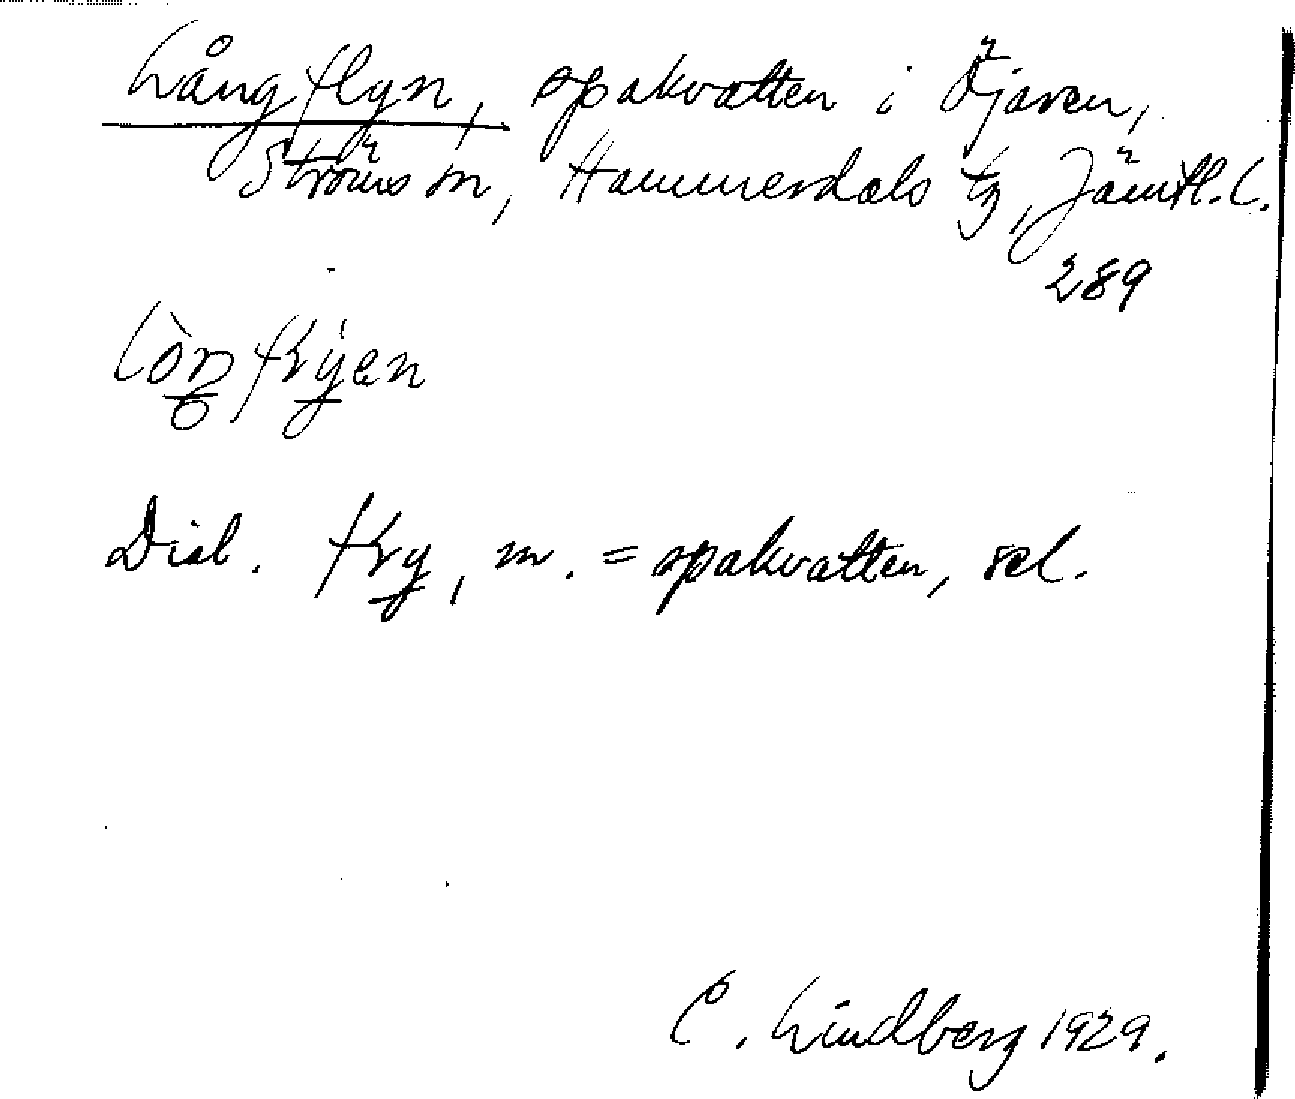 Långflyn, spakvatten i Öjaren,
Ströms sn, Hammerdals tg, Jämtl. l.
289
Dial. , m. = spakvatten, sel.
C. Lindberg 1929.